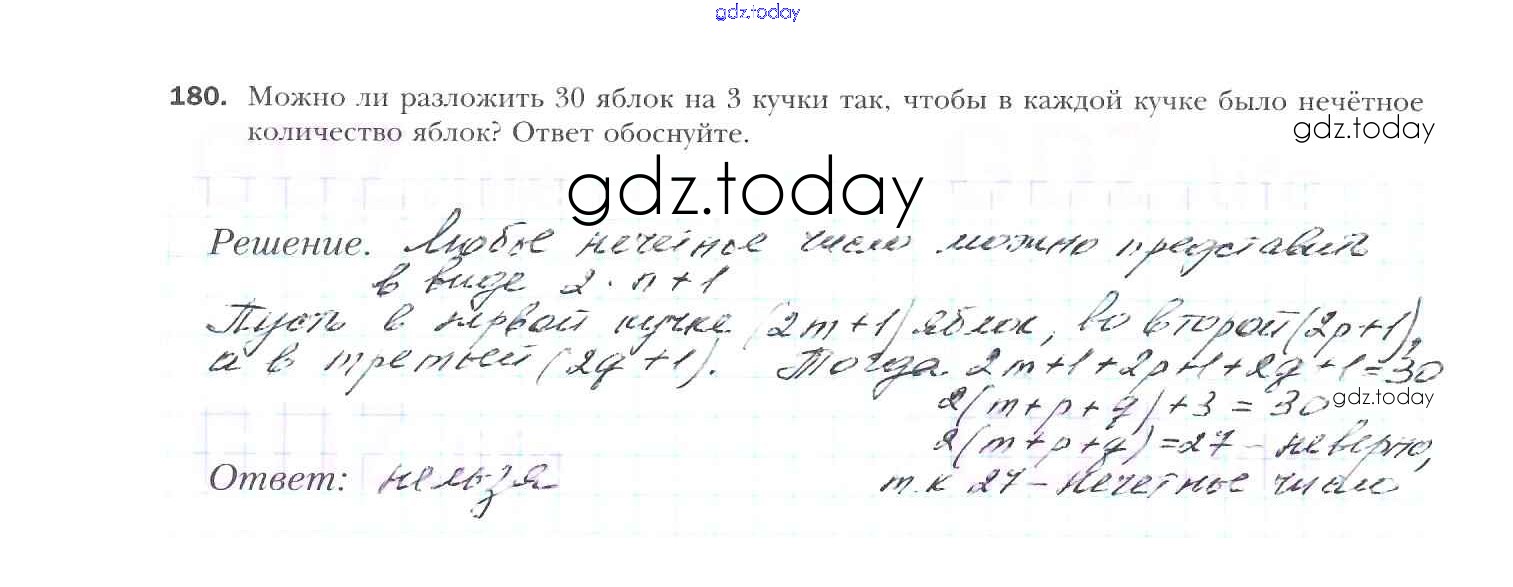 gdz.today
180. Можно ли разложить 30 яблок на 3 кучки так, чтобы в каждой кучке было нечётное
количество яблок? Ответ обоснуйте.
gdz.today
gdz.today
Решение. Любое нечетное число можно представить
в виде 2 · n + 1
Пусть в первой кучке (2m+1) яблок, во второй (2p+1),
а в третьей (2q+1). Тогда 2m+1+2p+1+2q+1=30
2(m+p+q)+3=30
gdz.today
2(m+p+q)=27 – неверно,
Ответ: нельзя
т.к 27 – нечетное число